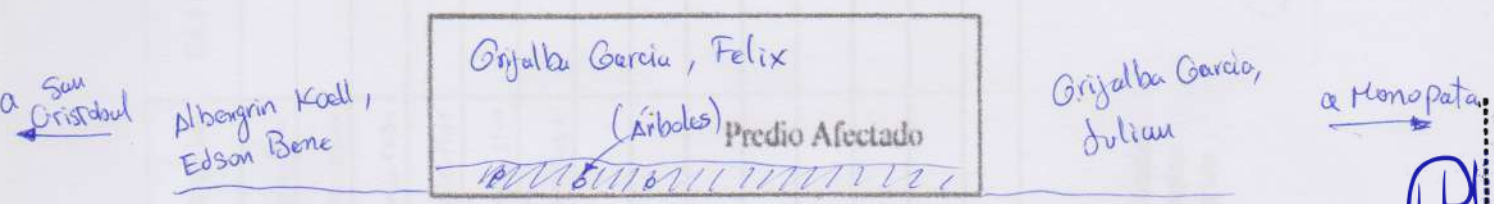 a San
Cristobal
Albengrin Koell,
Edson Bene
Grijalba Garcia, Felix
(Árboles)
Predio Afectado
Grijalba Garcia,
Julian
a Monopata